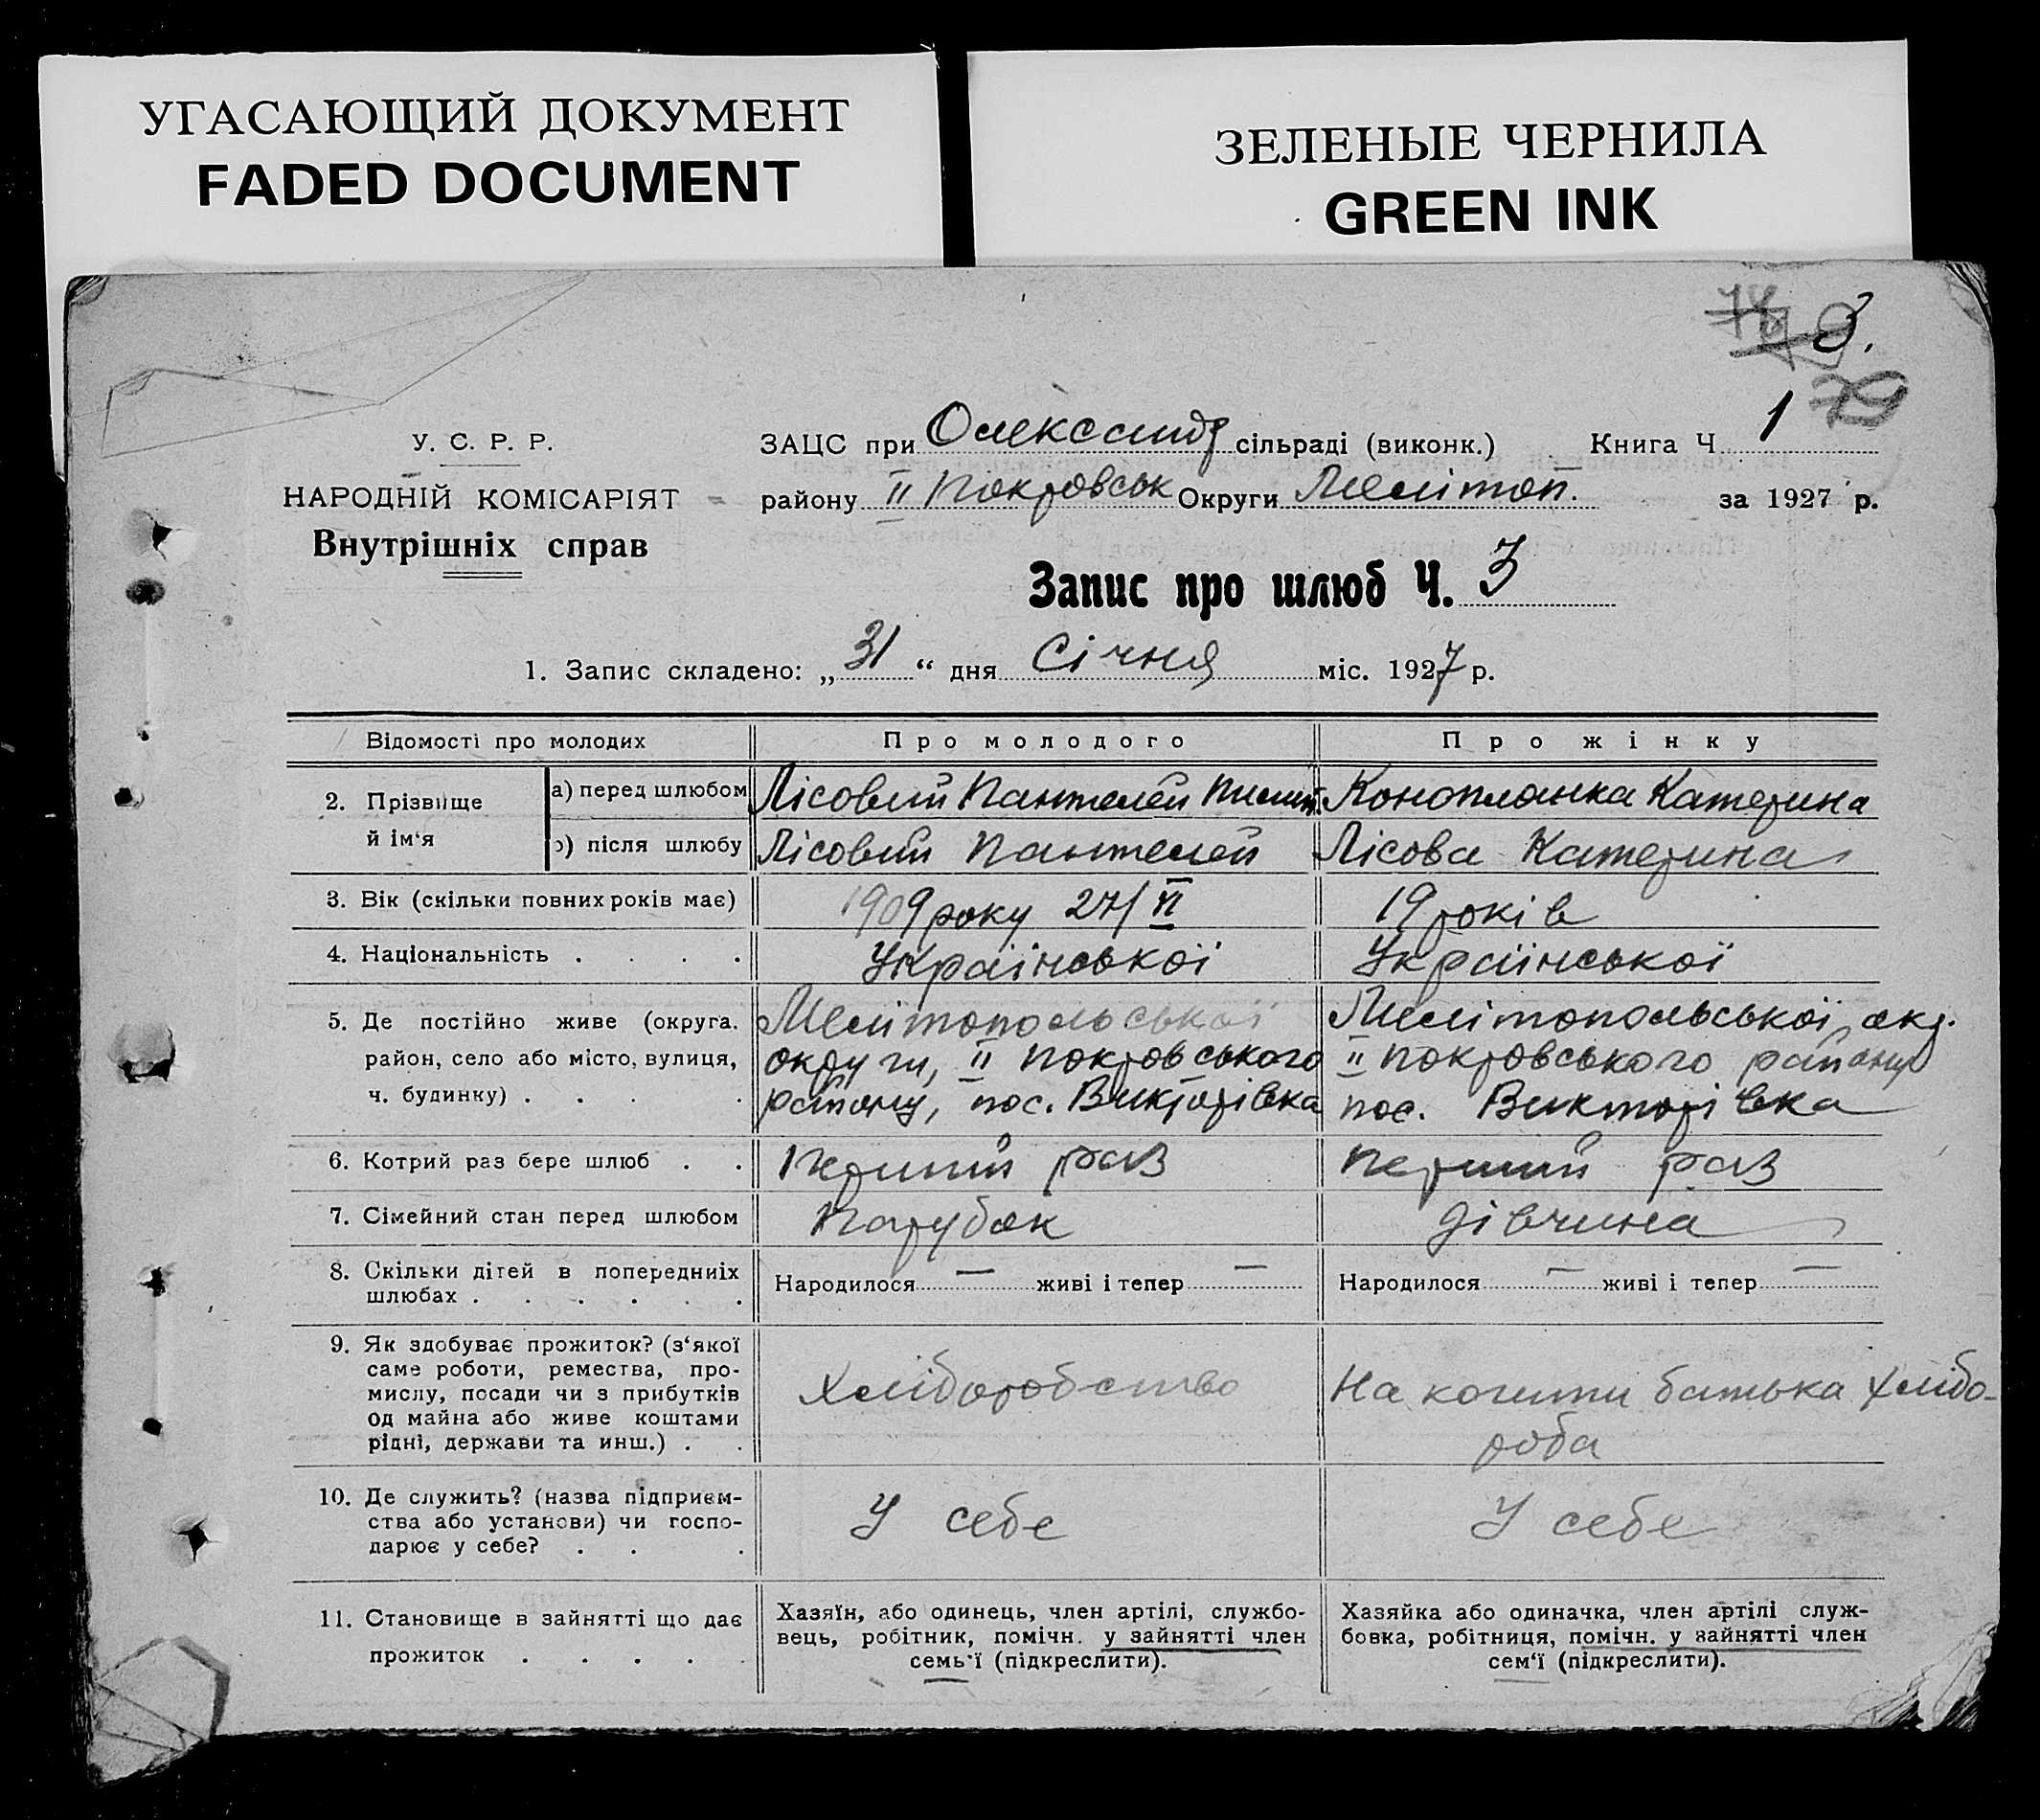 УГАСАЮЩИЙ ДОКУМЕНТ
FADED DOCUMENT
ЗЕЛЕНЫЕ ЧЕРНИЛА
GREEN INK
3.
79
У. С. Р. Р.
НАРОДНІЙ КОМІСАРІЯТ
Внутрішніх справ
ЗАЦС при Олександр сільраді (виконк.) Книга Ч 1
району ІІ Покровськ Округи Меліто​п. за 1927 р.
Запис про шлюб Ч. 3
1. Запис складено: „ 31 “ дня Січня міс. 1927 р.
Відомості про молодих Про молодого Про жінку
2. Прізвище й ім‘я
а) перед шлюбом Лісовий Пантелей Конопланка Катерина
після шлюбу Лісовий Пантелей Лісова Катерина
3. Вік (скільки повних років має) 1909 року 27/VI 19 років
4. Національність . . . . Української Української
5. Де постійно живе (округа. район, село або місто, вулиця, ч. будинку) . . .
Мелітопольської
округи, ІІ Покровського
району, пос. Викторівка
Мелітопольської, окр.
ІІ Покровського району
пос. Викторівка
6. Котрий раз бере шлюб . . Перший раз перший раз
7. Сімейний стан перед шлюбом Парубок дівчина
8. Скільки дітей в попередниіх
шлюбах . . . . . .
Народилося — живі і тепер —
Народилося — живі і тепер —
9. Як здобуває прожиток? (з‘якої
саме роботи, ремества, про-
мислу, посади чи з прибутків
од майна або живе коштами
рідні, держави та инш.) . .
Хліборобство
На кошти батька хлібо-
роба
10. Де служить? (назва підприєм-
ства або установи) чи госпо-
дарює у себе? . . .
У себе
У себе
11. Становище в зайнятті що дає
прожиток . . . . .
Хазяїн, або одинець, член артілі, службо-
вець, робітник, помічн. у зайнятті член
семь‘ї (підкреслити).
Хазяйка або одиначка, член артілі служ-
бовка, робітниця, помічн. у зайнятті член
сем‘ї (підкреслити).